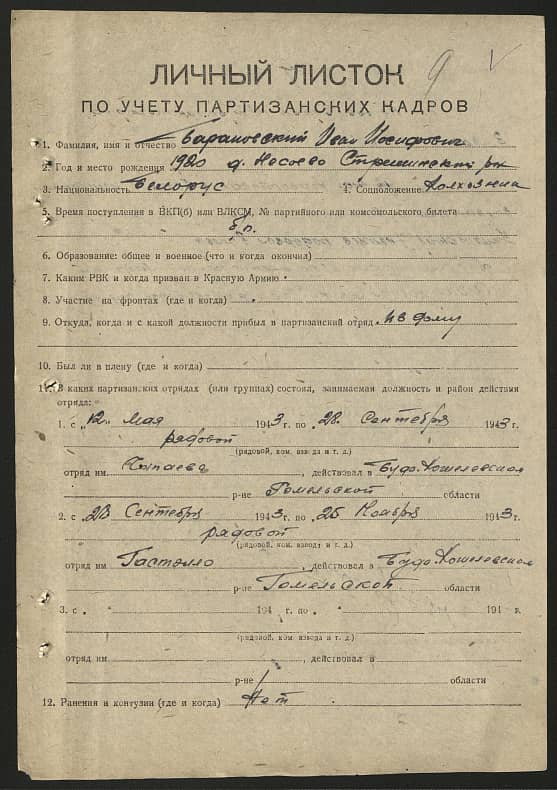 9 V
ЛИЧНЫЙ ЛИСТОК
ПО УЧЕТУ ПАРТИЗАНСКИХ КАДРОВ
1. Фамилия, имя и отчество Барановский Иван Иосифович
2. Год и место рождения 1920 д. Несоево Стрешинский рн
3. Национальность Белорус 4. Соцположение Колхозник
5. Время поступления в ВКП(б) или ВЛКСМ, № партийного или комсомольского билета
б/п.
6. Образование: общее и военное (что и когда окончил)
7. Каким РВК и когда призван в Красную Армию
8. Участие на фронтах (где и когда)
9. Откуда, когда и с какой должности прибыл в партизанский отряд из дому
10. Был ли в плену (где и когда)
11. В каких партизанских отрядах (или группах) состоял, занимаемая должность и район действия
отряда:
1. с „12" мая 1943 г. по „28" Сентября 1943 г.
рядовой
(рядовой, ком. взвода и т. д.)
отряд им. Чапаева, действовал в Будо-Кошелевском
р-не Гомельской области
2. с „28" Сентября 1943 г. по „25" Ноября 1943 г.
рядовой
(рядовой, ком. взвода и т. д.)
отряд им. Гастэлло, действовал в Будо-Кошелевском
р-не Гомельской области
3. с „ " 194 г. по „ " 194 г.
(рядовой, ком. взвода и т. д.)
отряд им. , действовал в
р-не области
12. Ранения и контузии (где и когда) Нет